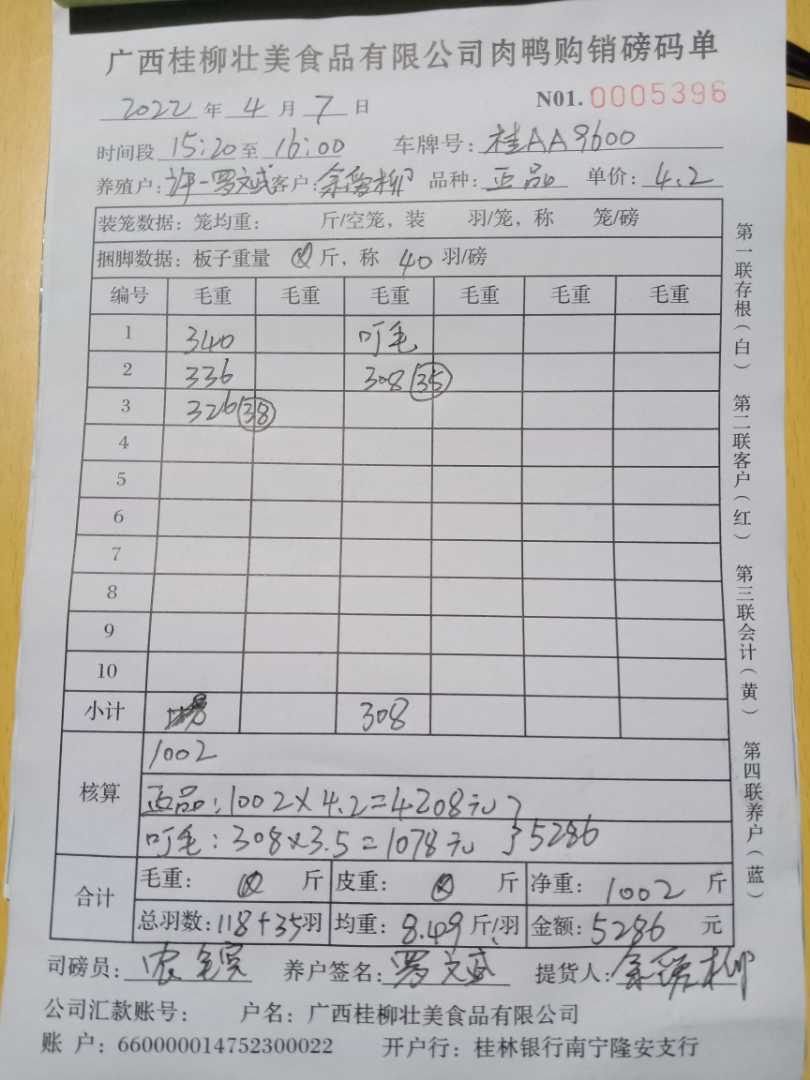 广西桂柳壮美食品有限公司肉鸭购销磅码单
2022 年 4 月 7 日 N01. 0005396
时间段 15:20 至 16:00 车牌号: 桂AA9600
养殖户: 许一罗文武 客户: 柳 品种: 正品 单价: 4.2
装笼数据: 笼均重: 斤/空笼, 装 羽/笼, 称 笼/磅
捆脚数据: 板子重量 斤, 称 40 羽/磅
编号 毛重 毛重 毛重 毛重 毛重 毛重
1 340 叮毛
2 336 308 35
3 326 38
4
5
6
7
8
9
10
小计 308
核算 1002
正品: 1002×4.2=4208元
叮毛: 308×3.5=1078元 } 5286
合计 毛重: 斤 皮重: 斤 净重: 1002 斤
总羽数: 118+35羽 均重: 8.49 斤/羽 金额: 5286 元
司磅员: 农 养户签名: 罗文武 提货人: 柳
公司汇款账号: 户名: 广西桂柳壮美食品有限公司
账 户: 660000014752300022 开户行: 桂林银行南宁隆安支行
第一联存根(白) 第二联客户(红) 第三联会计(黄) 第四联养户(蓝)